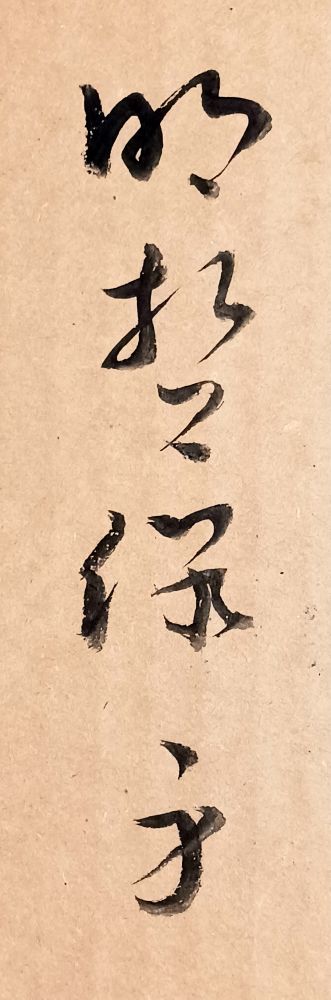 明哲保身